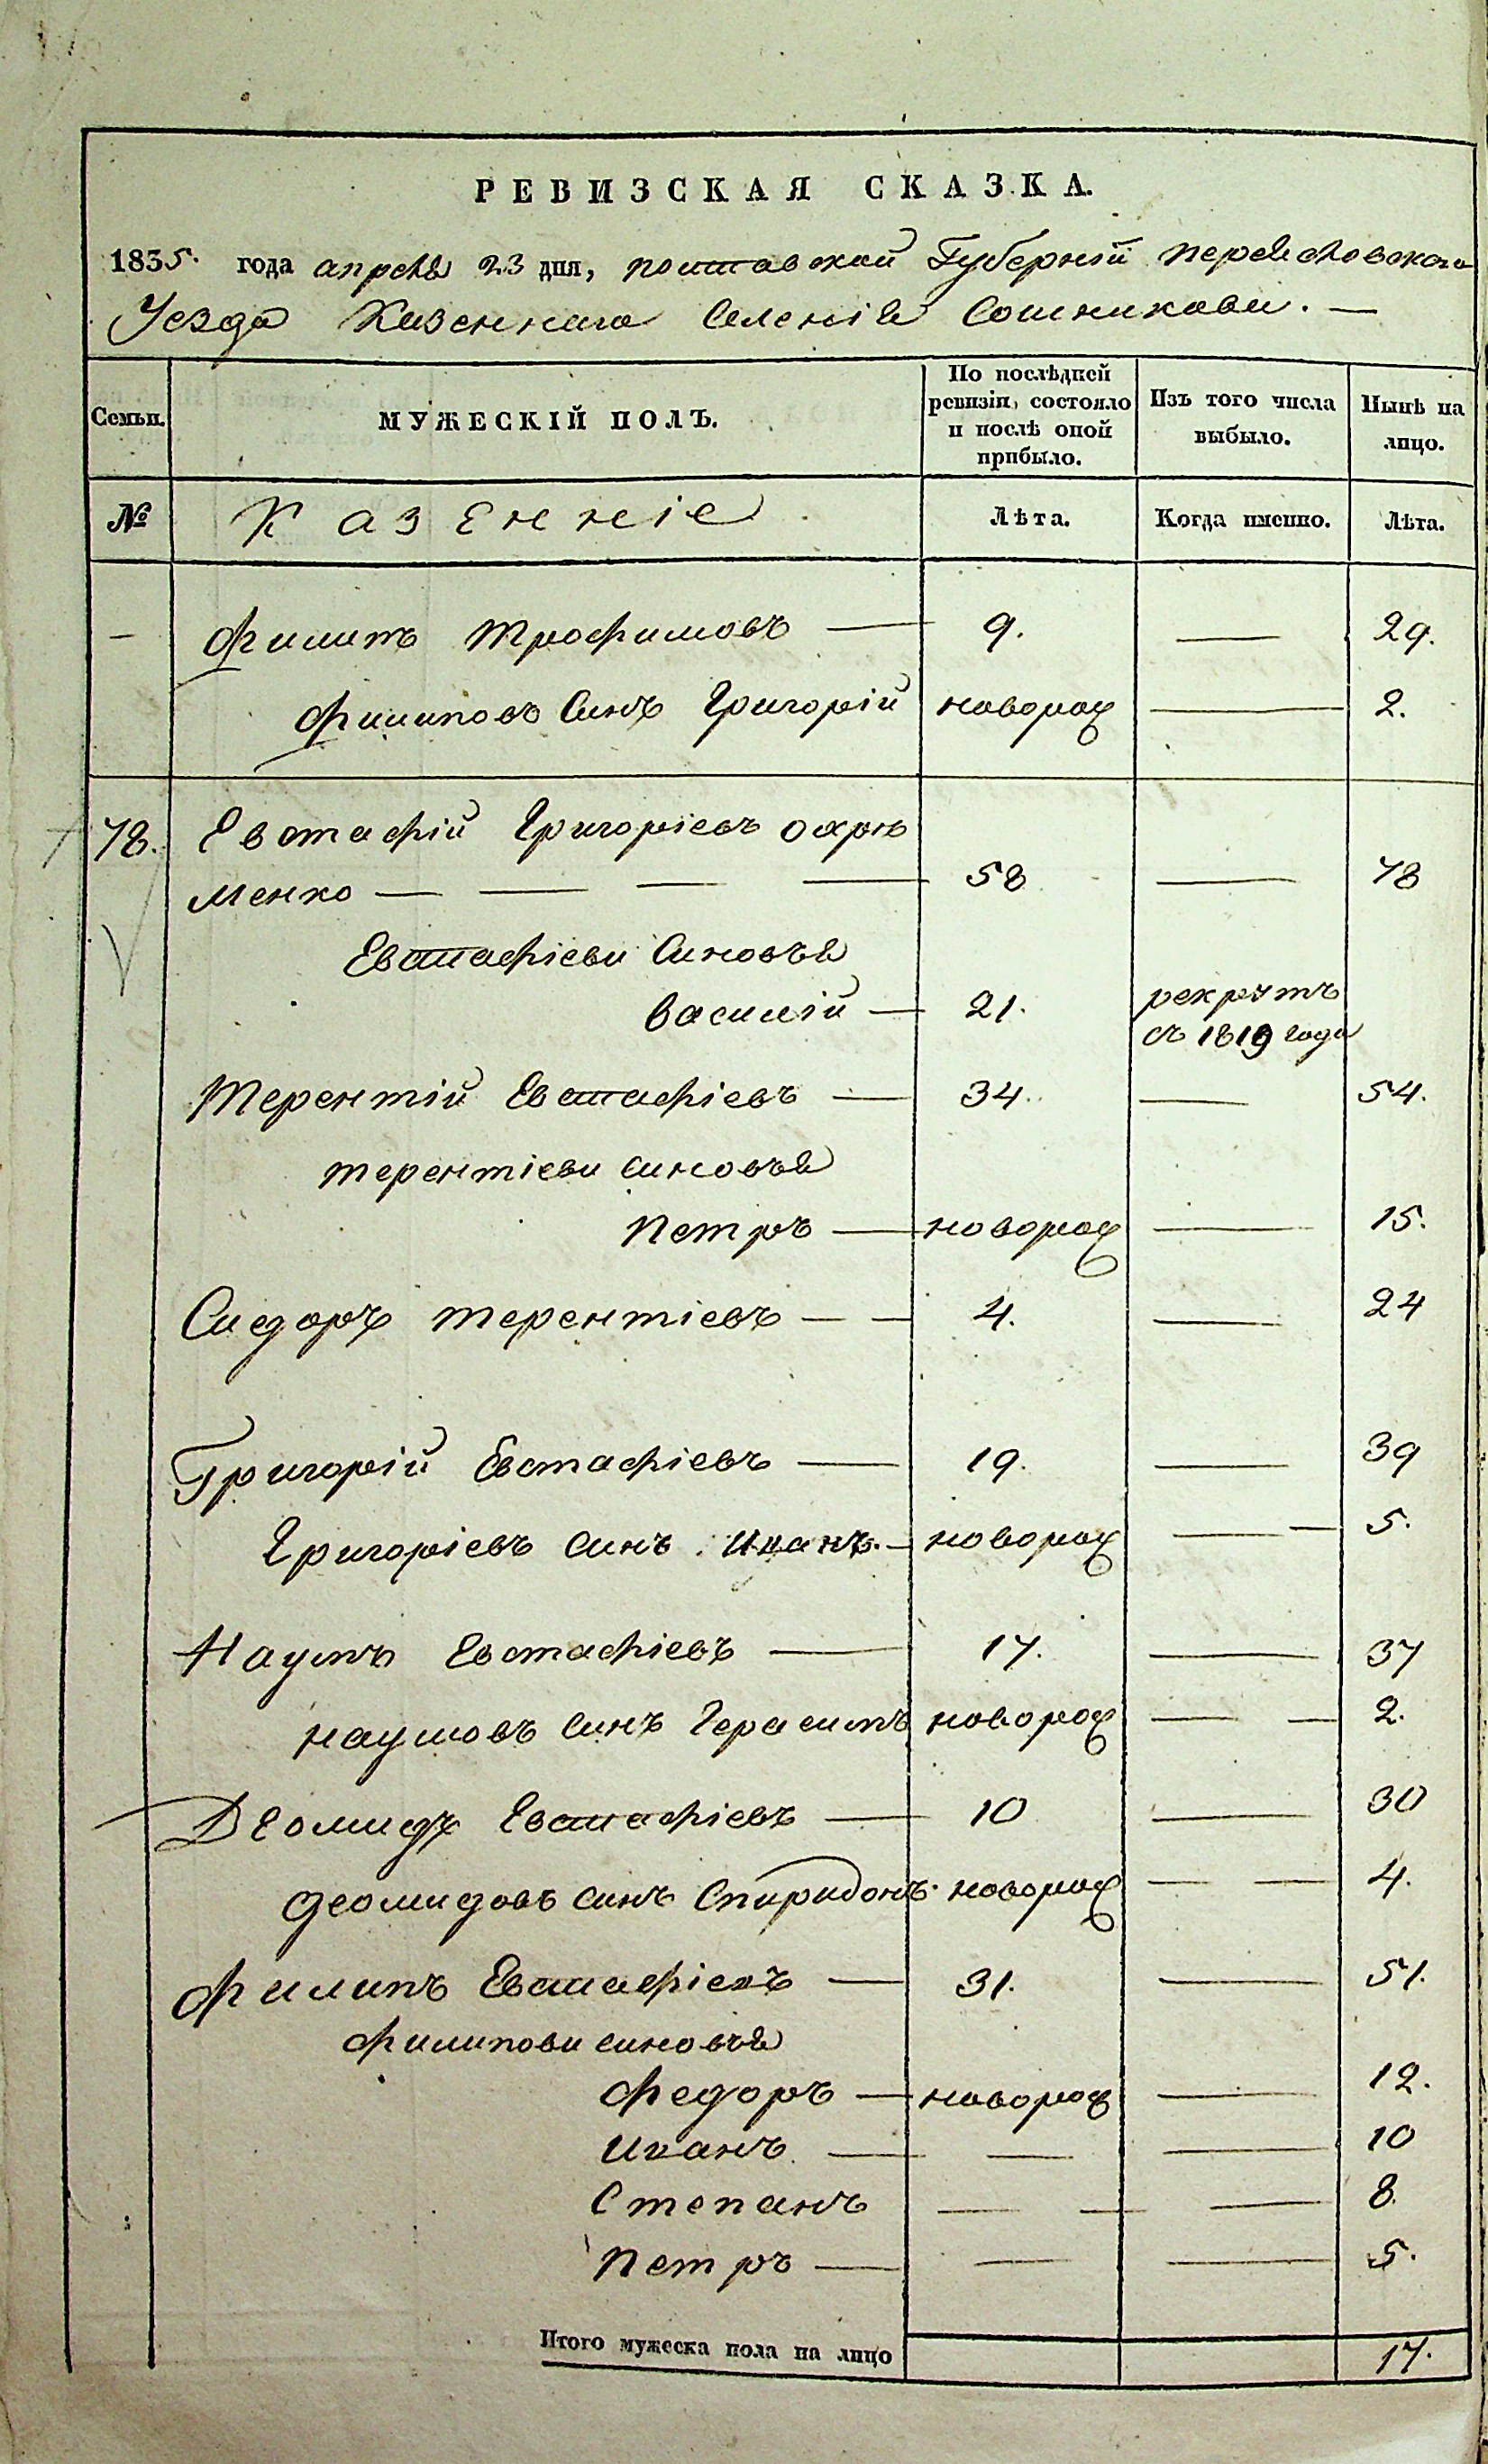 РЕВИЗСКАЯ СКАЗКА.
1835. года апреля 23 дня, полтавской Губерній переяславского
Уезда Казенного Селенія Сошникови. —
Семьи.
МУЖЕСКІЙ ПОЛЪ.
По послѣдней ревизіи, состояло и послѣ оной прибыло.
Изъ того числа выбыло.
Нынѣ на лицо.
№ Казенніе Лѣта. Когда именно. Лѣта.
— Филипъ Трофимовъ — 9. — 29.
Филиповъ Синъ Григорій новорож — 2.
78. Евстафій Григоріевъ охрѣ
менко — — — — 58 — 78
Евстафіеви Синовья
Василій — 21. рекрутъ
съ 1819 года
Терентій Евстафіевъ — 34. — 54.
терентіеви синовья
Петръ — новорож — 15.
Сидоръ терентіевъ — — 4. — 24
Григорій Евстафіевъ — 19. — 39
Григоріевъ Синъ Иванъ. — новорож — — 5.
Наумъ Евстафіевъ — 17. — 37
наумовъ Синъ Герасимъ новорож — — 2.
Деомидъ Евстафіевъ — 10 — 30
деомидовъ Синъ Спиридонъ. новорож — — 4.
Филипъ Евстафіевъ — 31. — 51.
Филипови синовья
Федоръ — новорож — 12.
Иванъ — — — 10
Степанъ — — — 8.
Петръ — — — 5.
Итого мужеска пола на лицо 17.